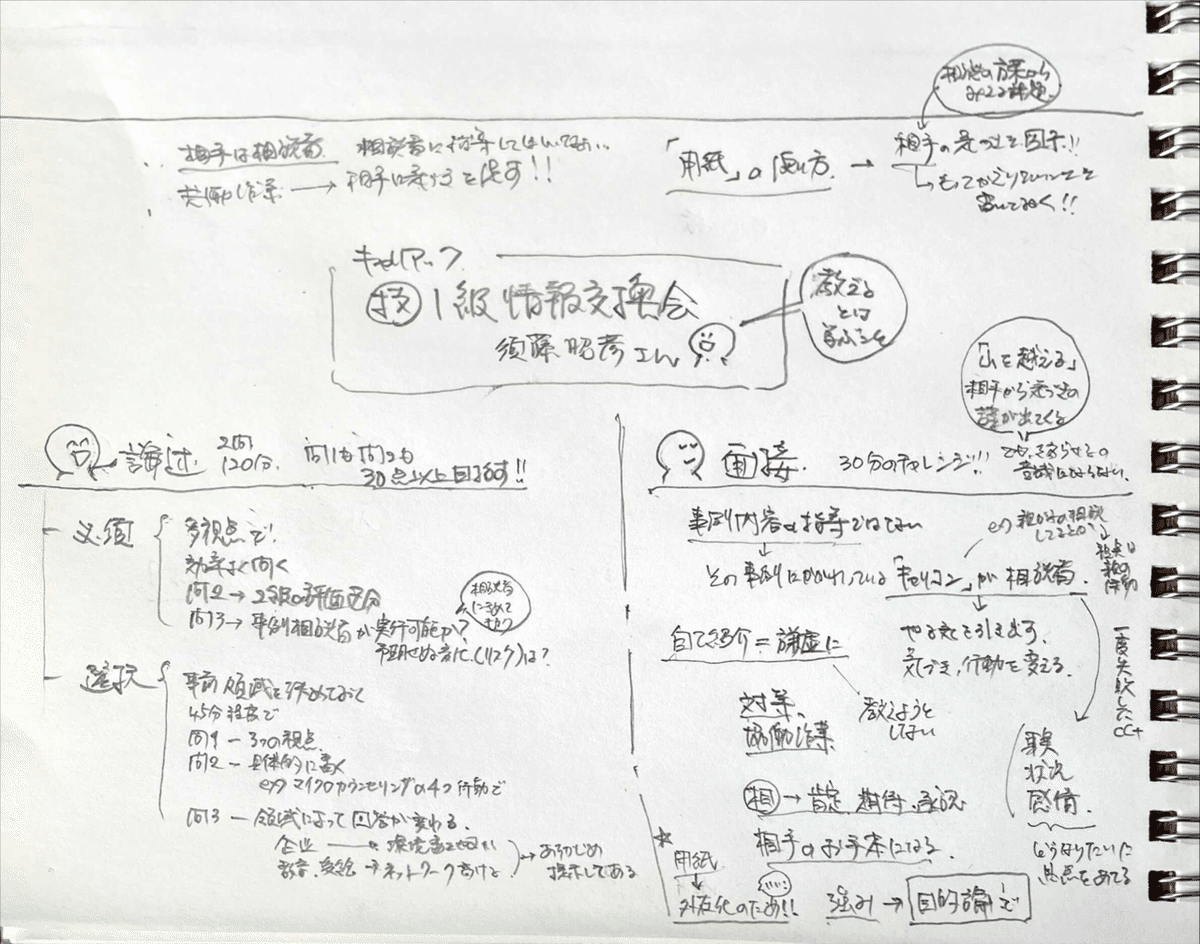 相談の方策から
相手は相談者
相談者に指導してはいけない…
共働作業 → 相手に考えることを促す!!
「用紙」の使い方 →
相手の言ったことを図示!!
書いておく!!
キャリアアップ
技 1級情報交換会
須藤昭彦さん
教える
とは
学ぶこと
「山を越える」
相手から
答が出てくる
論述 2問 120分
問1も問2も
30点以上目指す!!
必須
多視点で!
効率よく問く
問2→2級の評価区分
問3→事例相談者が実行可能か?
(リスク)は?
相談者
選択
事前 領域を決めておく
45分程度で
問1 ー 3つの視点
問2 ー 具体的に書く
ex) マイクロカウンセリングの4つ 行動で
問3 ー 領域によって回答が変わる.
企業
教育、 → ネットワーク
→ あらかじめ
提示してある
面接. 30分のチャレンジ!!
事例内容の指導ではない
その事例にかかれている「キャリコン」が相談者.
自己紹介=謙虚に
やる気を引き出す.
気づき,行動を変える.
対等、
協働作業
教えようと
しない
一度失敗したCCt
事実
状況
感情.
どうなりたいに
焦点をあてる
相 → 肯定.期待.承認
相手のお手本になる.
* 用紙
↓
外在化のため!!
強み → 目的論で